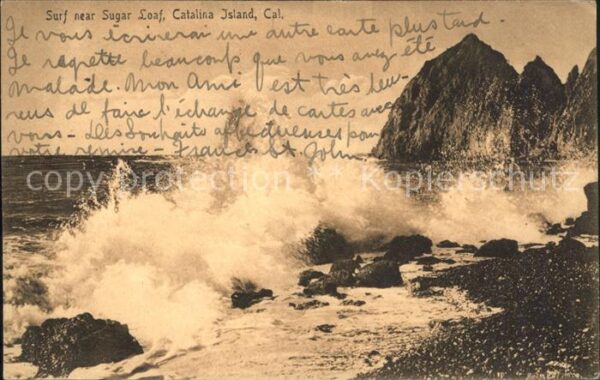 Surf near Sugar Loaf, Catalina Island, Cal.
Je vous écrirerai une autre carte plustard.
Je regrette beaucoup que vous avez été
malade. Mon Ami est très heu-
reus de faire l'échange de cartes avec
vous - Les souhaits affectueuses pour
votre remise - Frances St. John
copyright Kopierschutz